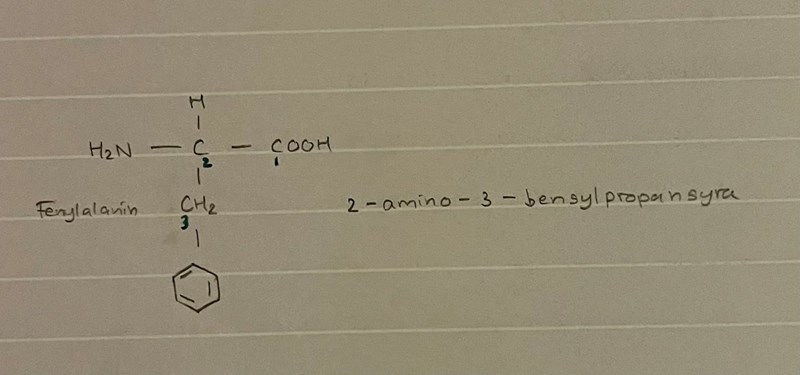 H
H₂N — C — COOH
2 1
Fenylalanin CH₂ 2-amino-3-bensylpropansyra
3